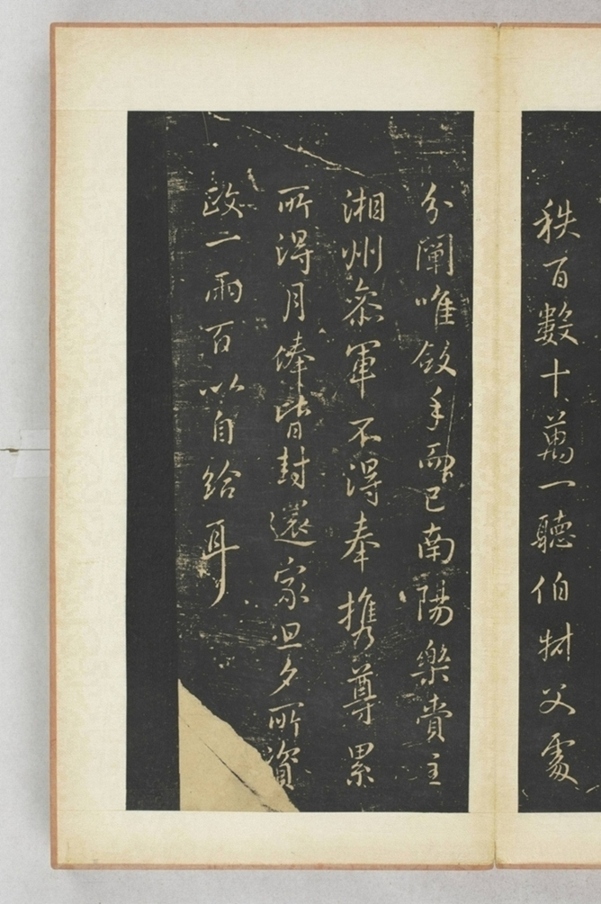 秩百數十萬一聽伯叔父處
分闡唯斂手而已南陽樂賣主
湘州叅軍不得奉攜尊累
所得月俸皆封還家旦夕所資
政一兩百以自給耳